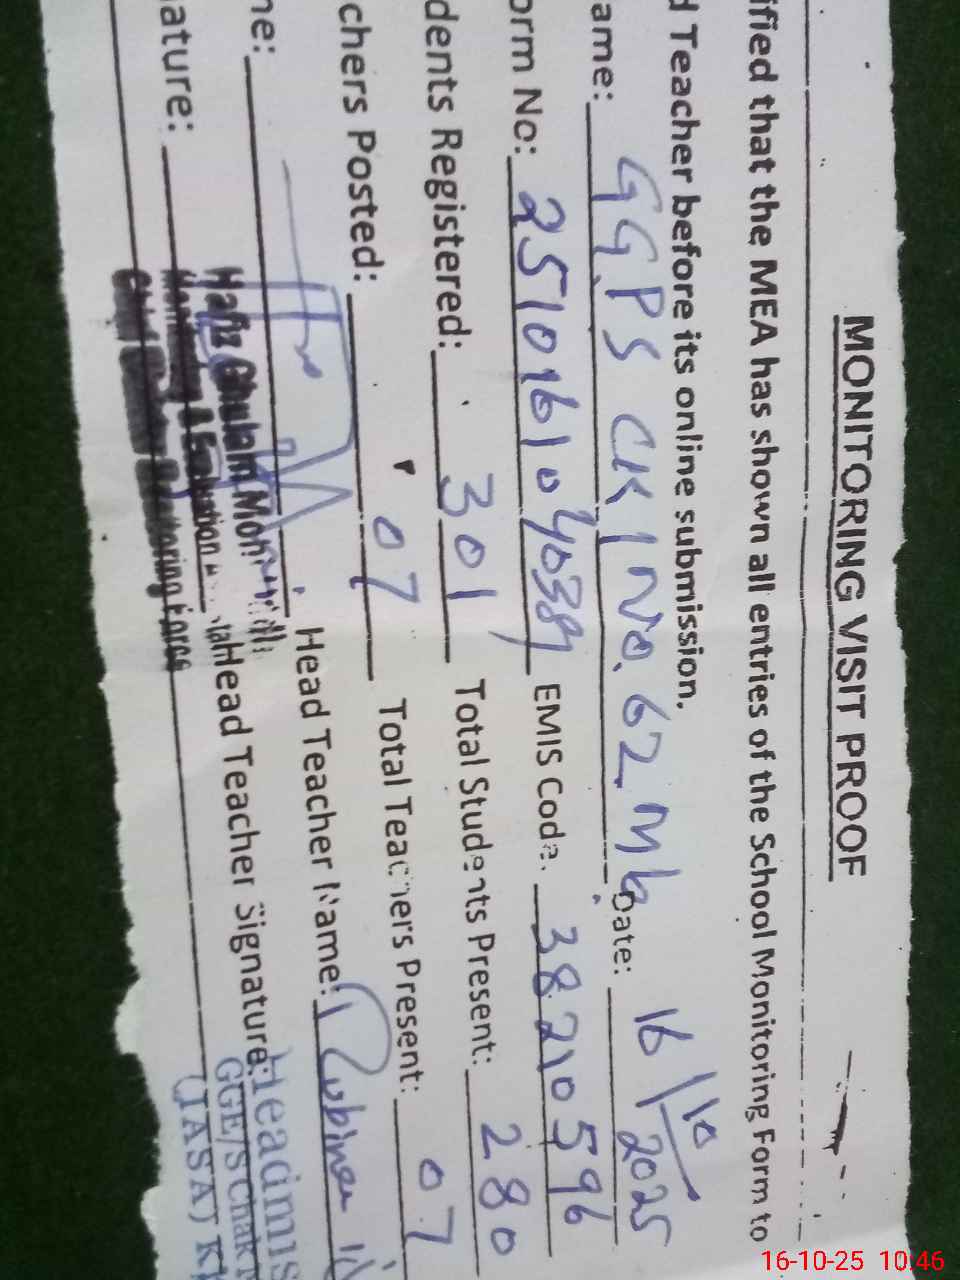 MONITORING VISIT PROOF
ified that the MEA has shown all entries of the School Monitoring Form to
d Teacher before its online submission.
ame: GGPS Ck No. 62 Mb Date: 16/10/2025
orm No: EMIS Code. 38210596
dents Registered: 301 Total Students Present: 280
chers Posted: 07 Total Teachers Present: 07
me: Head Teacher Name: Rubina
ature: Head Teacher Signature:
Hafiz Ghulam
Monitoring
Monitoring Force
Headmis
GGE/S Chak
(IASA) K
16-10-25 10:46